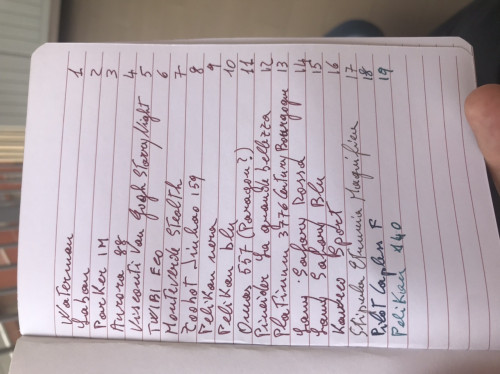 Waterman 1
Laban 2
Parker IM 3
Aurora 88 4
Visconti Van Gogh Starry Night 5
TWSBI Eco 6
Monteverde Stealth 7
Jinhao 159 8
Pelikan 9
Pelikan blu 10
Omas 557 (Paragon?) 11
Pineider La grande bellezza 12
Platinum 3776 Century Bourgogne 13
Lamy Safary Rossa 14
Lamy Safary Blu 15
Kaweco Sport 16
Stipula Etruria Magnifica 17
Pilot Caplen F 18
Pelikan 140 19